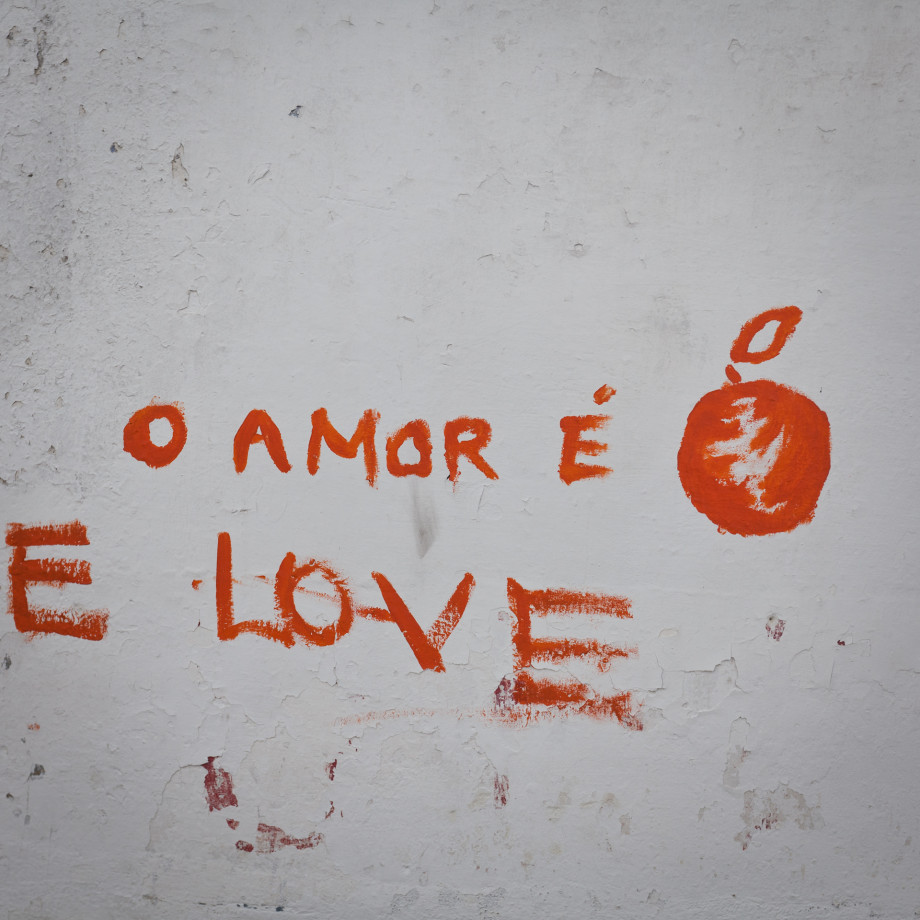 O AMOR É
E LOVE